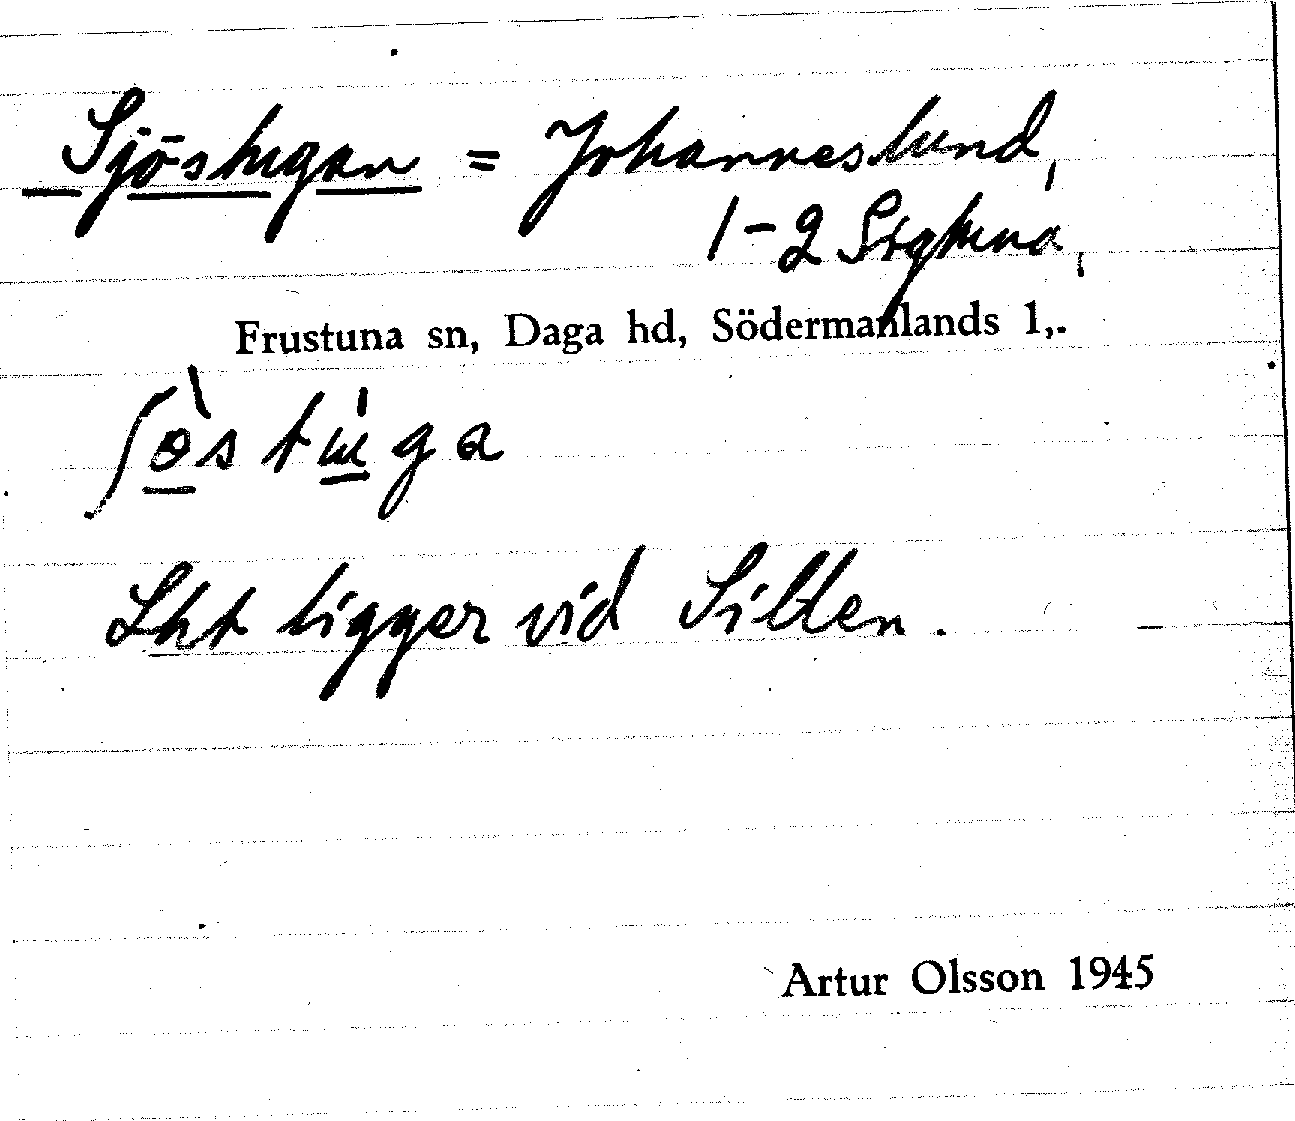 Sjöstugan = Johanneslund,
1-2 Sigtuna,
Frustuna sn, Daga hd, Södermanlands l,.
ʃòstúga
Lht ligger vid Sillen.
Artur Olsson 1945